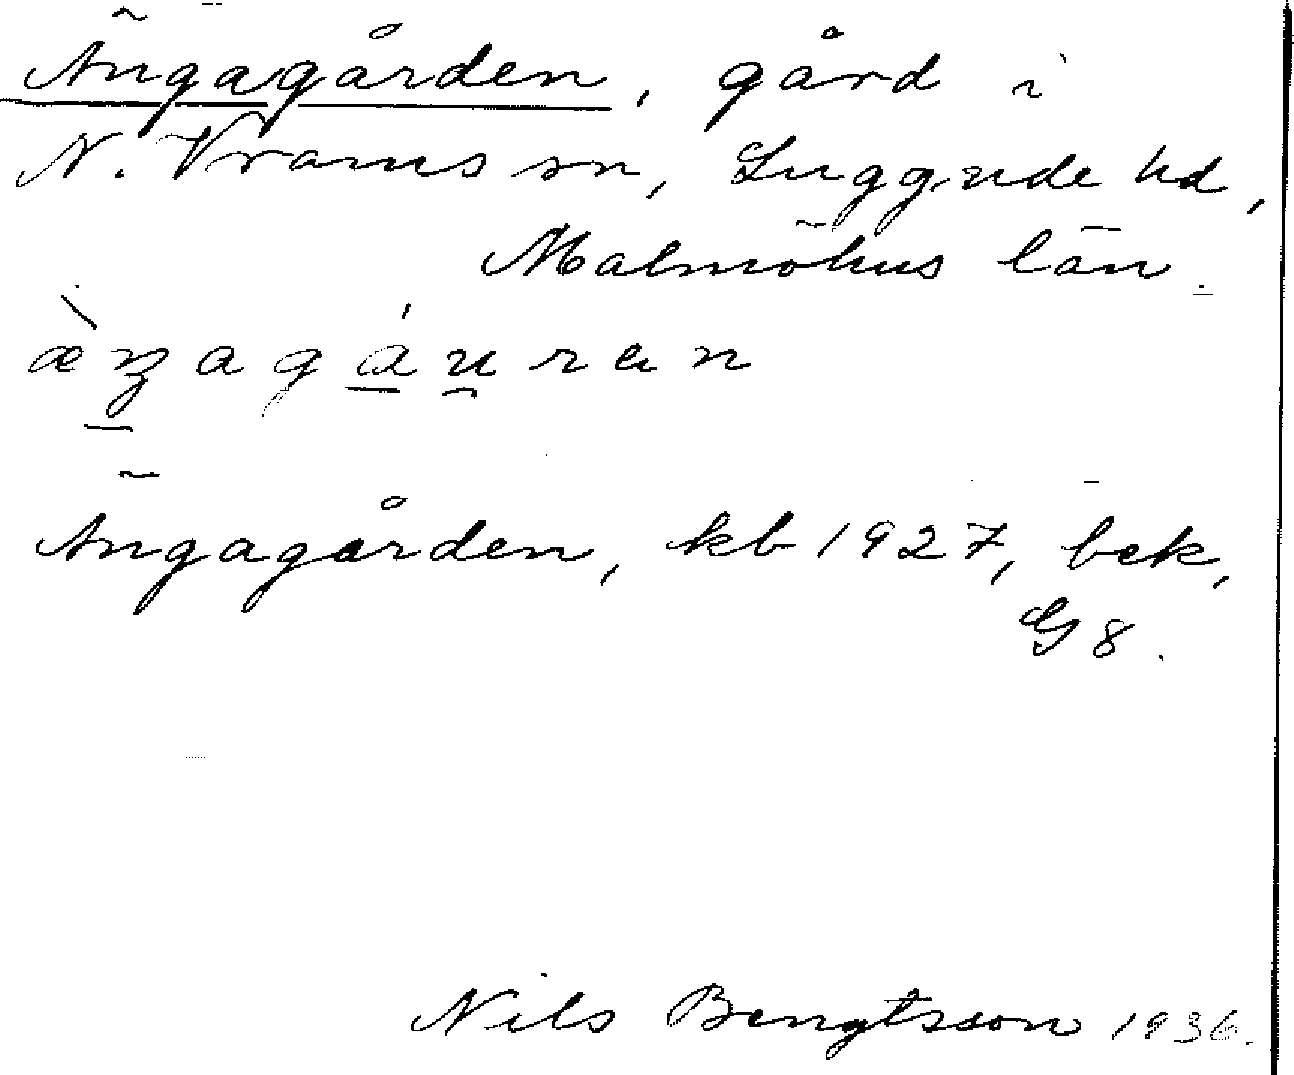 Ängagården, gård i
N. Vrams sn, Luggude hd,
Malmöhus län.
æ̀ŋagáu̯ran
Ängagården, kb 1927, bek,
G 8.
Nils Bengtsson 1936.